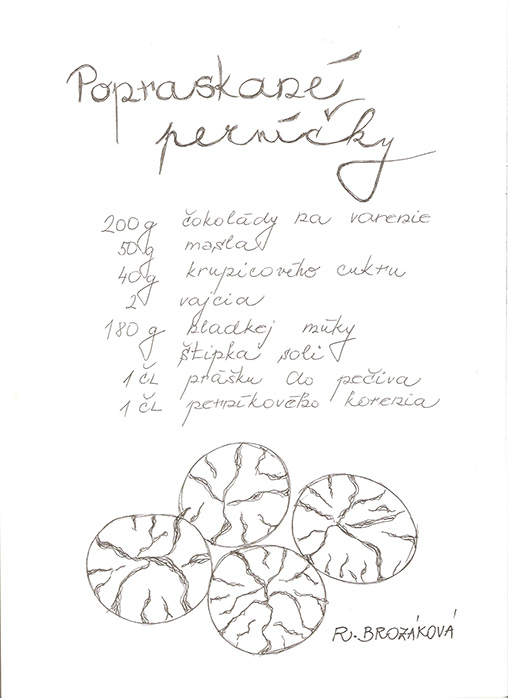 Popraskané
perníčky
200 g čokolády na varenie
50 g masla
40 g krupicového cukru
2 vajcia
180 g hladkej múky
štipka soli
1 ČL prášku do pečiva
1 ČL perníkového korenia
R. BROZÁKOVÁ